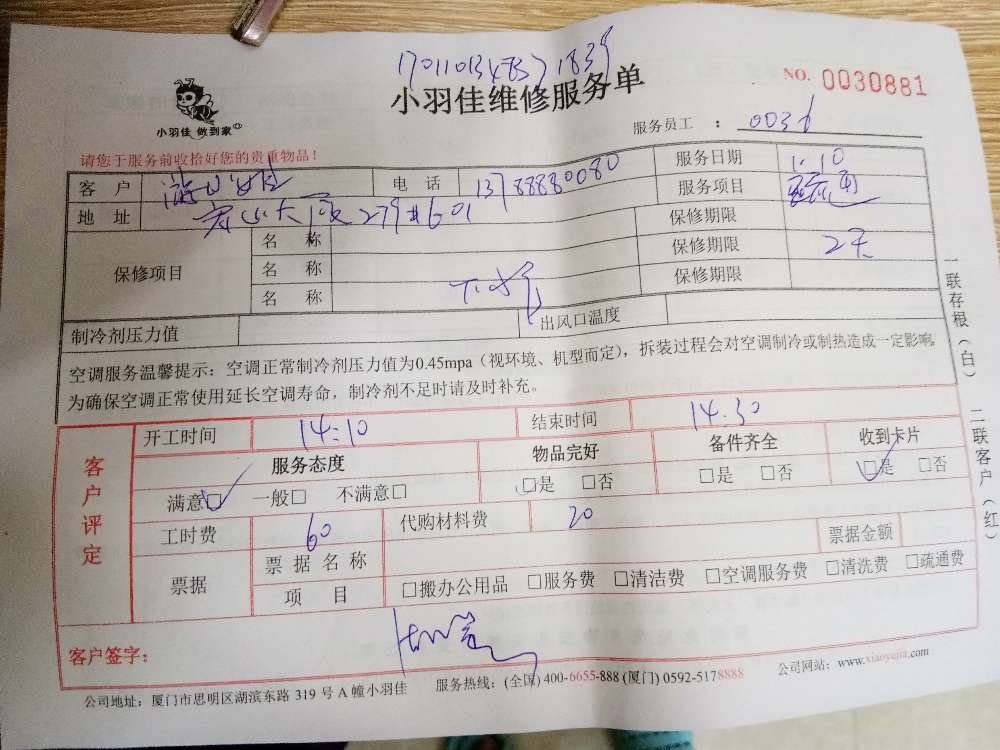 小羽佳维修服务单
NO. 0030881
小羽佳 做到家
服务员工 : 0036
请您于服务前收拾好您的贵重物品!
客户 电话 13788880080 服务日期 1.10
地址 279#601 服务项目 疏通
保修项目 名称 保修期限
名称 保修期限 2天
名称 下水 保修期限
制冷剂压力值 出风口温度
空调服务温馨提示:空调正常制冷剂压力值为0.45mpa(视环境、机型而定),拆装过程会对空调制冷或制热造成一定影响。
为确保空调正常使用延长空调寿命,制冷剂不足时请及时补充。
一联存根(白) 二联客户(红)
客户评定
开工时间 14:10 结束时间 14:30
服务态度 物品完好 备件齐全 收到卡片
满意☑ 一般□ 不满意□ ☑是 □否 □是 □否 ☑是 □否
工时费 60 代购材料费 20
票据 票据名称 票据金额
项目 □搬办公用品 □服务费 □清洁费 □空调服务费 □清洗费 □疏通费
客户签字:
公司地址:厦门市思明区湖滨东路 319 号 A 幢小羽佳 服务热线:(全国) 400-6655-888 (厦门) 0592-5178888 公司网站:www.xiaoyujia.com